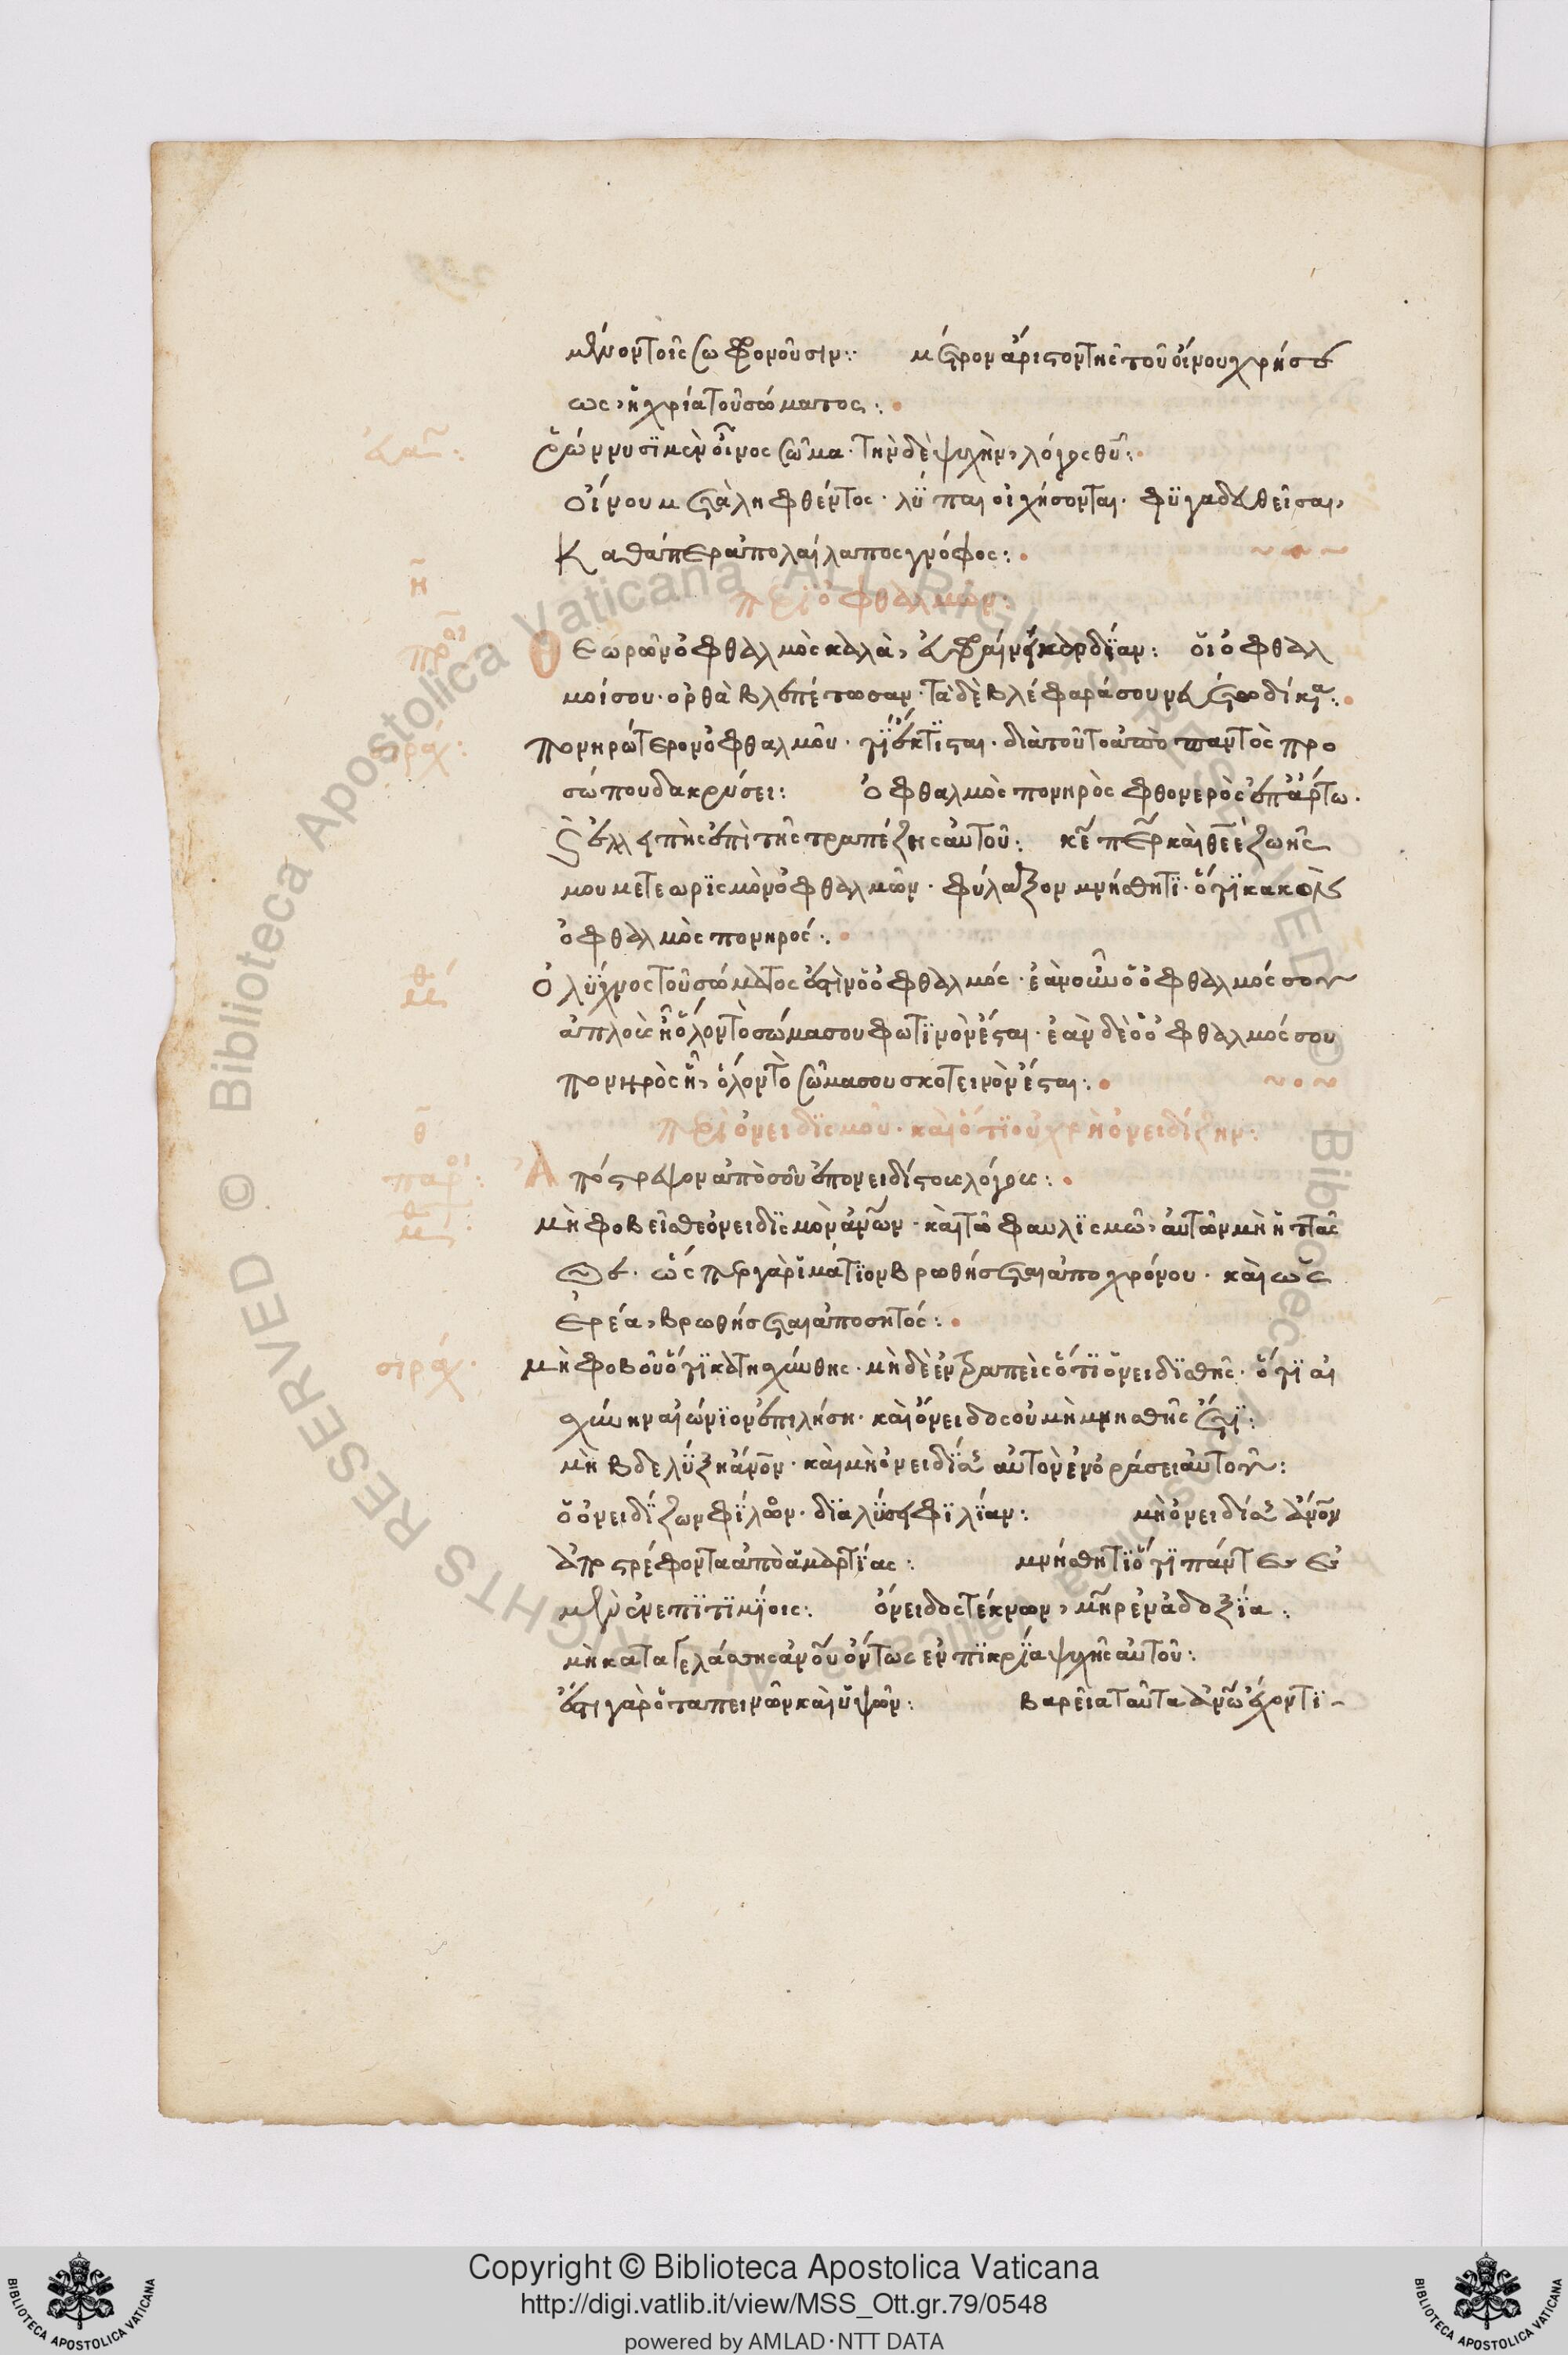 μενον τοῖς σωφρονοῦσιν: μέτρον ἄριστον τῆς τοῦ οἴνου χρήσε
ως, ἡ χρία τοῦ σώματος:
εὐαγ:
ῥώννυσϊ μὲν οἶνος σῶμα· τὴν δὲ ψυχὴν, λόγος θῦ:
οἴνου μεταληφθέντος· λῦπαι οἰχήσονται· φϋγαδευθεῖσαι,
Καθάπερ ἀπολαίλαπος γνόφος:
η̄
περὶ ὀφθαλμῶν:
προι
Θεωρῶν ὀφθαλμὸς καλὰ, εὐφραίνει καρδίαν: ὅι ὀφθαλ
μοί σου· ορθὰ βλεπέτωσαν· τὰ δὲ βλέφαρά σου νευέτω δίκαια:
σιράχ:
πονηρώτερον ὀφθαλμοῦ· τί ἔκτϊσται· διὰ τοῦτο ἀπὸ παντὸς προ
σώπου δακρύσει: Ὀφθαλμὸς πονηρὸς φθονερὸς ἐπ᾽ ἄρτω·
Καὶ ἐλλειπὴς ἐπὶ τῆς τραπέζης αὐτοῦ: κε περ καὶ θεὲ ζωῆς
μου μετεωρϊσμὸν ὀφθαλμῶν· φύλαξον μνήσθητϊ· ὅτϊ κακὸν
ὀφθαλμὸς πονηρός:
μθ
Ὁ λύχνος τοῦ σώματος ἐστὶν ὁ ὀφθαλμός· ἐὰν οὖν ὁ ὀφθαλμός σου
ἁπλοὺς ἦ ὅλον τὸ σώμα σου φωτϊνὸν ἔσται· ἐὰν δὲ ὁ ὀφθαλμός σου
πονηρὸς ἦ, ὅλον τὸ σῶμα σου σκοτεινὸν ἔσται:
θ̄
περὶ ὀνειδϊσμοῦ· καὶ ὅτϊ οὐ χρὴ ὀνειδίζειν:
παροι:
Ἀπόστρεψον ἀπὸ σοῦ ἐπονειδίστους λόγους:
μθ:
μὴ φοβεῖσθε ὀνειδϊσμὸν ἀνων· καὶ τῶ φαυλϊσμῶ, αὐτῶν μὴ ἡττᾶσ
θε· ὥσπερ γὰρ ἱμάτϊον βρωθήσεται ἀπο χρόνου· καὶ ὡς
ἐρέα, βρωθήσεται ἀπο σητός:
σιράχ·
μὴ φοβοῦ ὅτϊ κατησχύνθης· μὴ δὲ ἐντραπεὶς ὅτϊ ὀνειδϊσθῆς· ὅτϊ αἰ
σχύνην αἰώνϊον ἐπιλήση· καὶ ὄνειδος οὐ μὴ μνησθῆς ἔτϊ:
μὴ βδελύξη ἀνον· καὶ μὴ ὀνειδίσης αὐτὸν ἐν ὁράσει αὐτοῦ:
ὁ ὀνειδίζων φίλον· δϊαλύσει φϊλίαν: μὴ ὀνειδίσης ἀνον
ἀποστρέφοντα ἀπὸ ἁμαρτίας: μνήσθητϊ ὅτϊ πάντες ἐς
μὲν ἐν επϊτϊμίοις: ὄνειδος τέκνων, μηρ ἐν ἀδοξία:
μὴ καταγελάσης ἀνου ὄντως εν πϊκρία ψυχῆς αὐτοῦ:
ἔστι γὰρ ὁ ταπεινῶν καὶ ὑψῶν: βαρεῖα ταῦτα ἀνω ἔχοντϊ
Copyright © Biblioteca Apostolica Vaticana
http://digi.vatlib.it/view/MSS_Ott.gr.79/0548
powered by AMLAD·NTT DATA